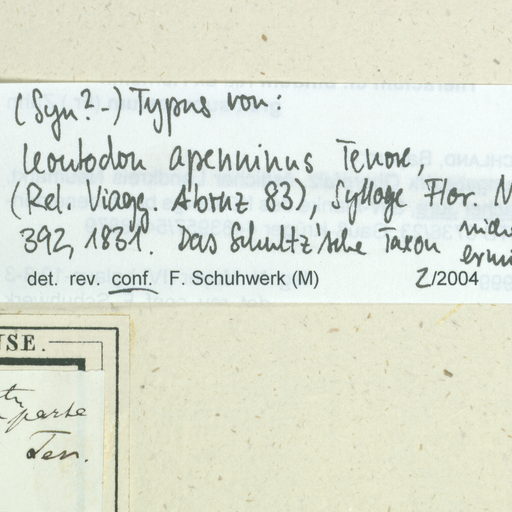 (Syn?-) Typus von:
Leontodon apenninus Tenore,
(Rel. Viagg. Abruz 83), Sylloge Flor. N
392, 1831. Das Schultz'sche Taxon nich
det. rev. conf. F. Schuhwerk (M) 2/2004
USE.
parte
Ten.